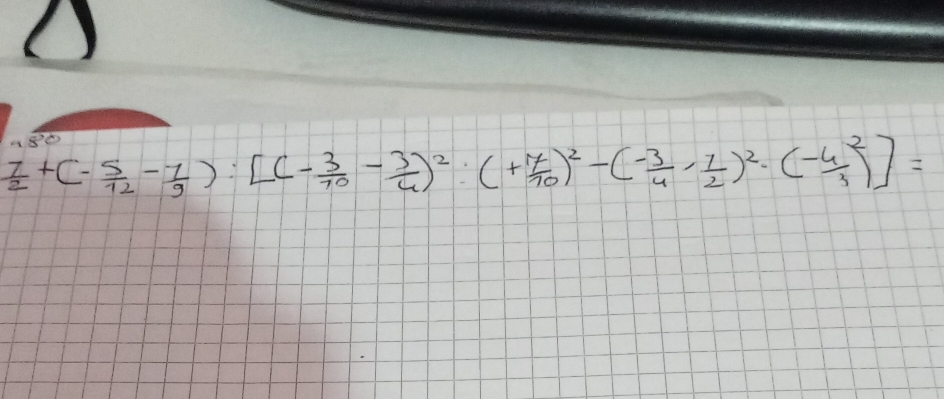 180
1/2 + (- 5/12 - 1/9) : [(- 3/10 - 3/4)² : (+ 7/10)² - (-3/4 - 1/2)² · (-4/3)²] =